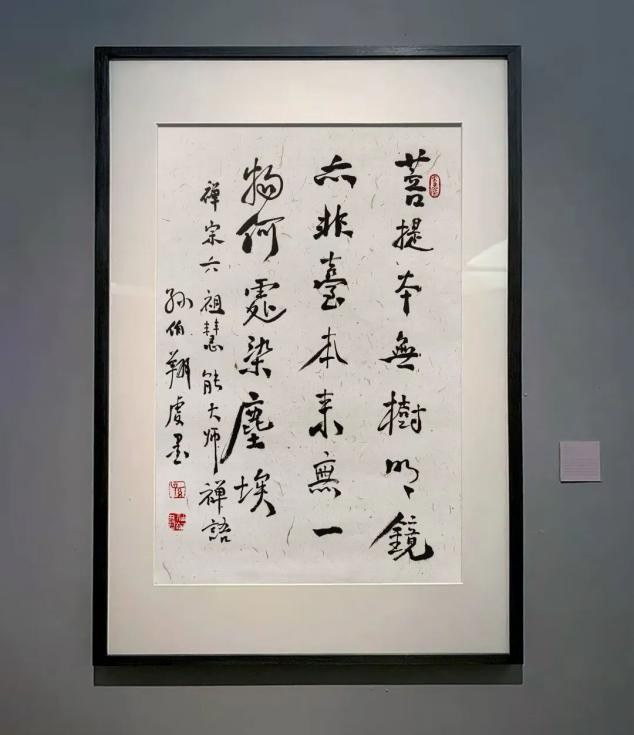 菩提本無樹明鏡
亦非臺本来無一
物何處染塵埃
禪宗六祖慧能大師禪語
孙伯翔虔墨